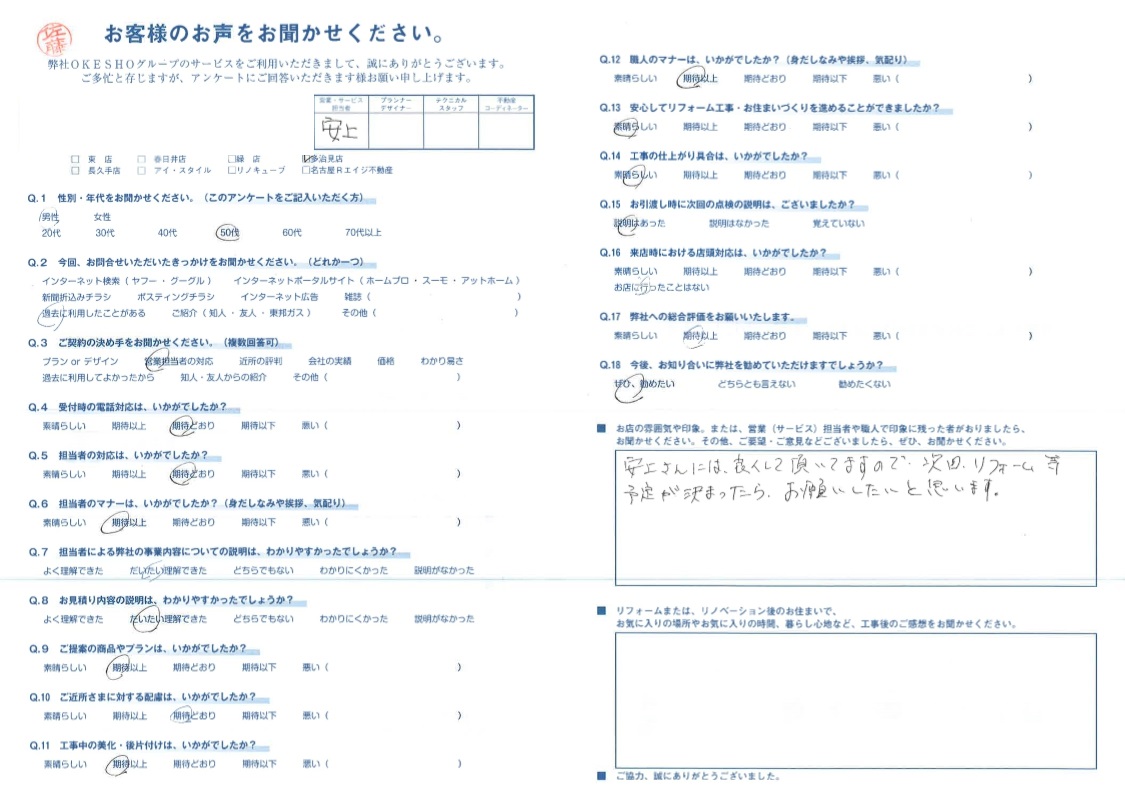 佐藤
お客様のお声をお聞かせください。
弊社OKESHOグループのサービスをご利用いただきまして、誠にありがとうございます。
ご多忙と存じますが、アンケートにご回答いただきます様お願い申し上げます。
営業・サービス担当者 プランナーデザイナー テクニカルスタッフ 不動産コーディネーター
安上
□ 東 店 □ 春日井店 □緑 店 □多治見店
□ 長久手店 □ アイ・スタイル □リノキューブ □名古屋Rエイジ不動産
Q.1 性別・年代をお聞かせください。（このアンケートをご記入いただく方）
男性 女性
20代 30代 40代 50代 60代 70代以上
Q.2 今回、お問合せいただいたきっかけをお聞かせください。（どれか一つ）
インターネット検索（ ヤフー ・ グーグル ） インターネットポータルサイト（ ホームプロ ・ スーモ ・ アットホーム ）
新聞折込みチラシ ポスティングチラシ インターネット広告 雑誌（ ）
過去に利用したことがある ご紹介（ 知人 ・ 友人 ・ 東邦ガス ） その他（ ）
Q.3 ご契約の決め手をお聞かせください。（複数回答可）
プラン or デザイン 営業担当者の対応 近所の評判 会社の実績 価格 わかり易さ
過去に利用してよかったから 知人・友人からの紹介 その他（ ）
Q.4 受付時の電話対応は、いかがでしたか？
素晴らしい 期待以上 期待どおり 期待以下 悪い（ ）
Q.5 担当者の対応は、いかがでしたか？
素晴らしい 期待以上 期待どおり 期待以下 悪い（ ）
Q.6 担当者のマナーは、いかがでしたか？（身だしなみや挨拶、気配り）
素晴らしい 期待以上 期待どおり 期待以下 悪い（ ）
Q.7 担当者による弊社の事業内容についての説明は、わかりやすかったでしょうか？
よく理解できた だいたい理解できた どちらでもない わかりにくかった 説明がなかった
Q.8 お見積り内容の説明は、わかりやすかったでしょうか？
よく理解できた だいたい理解できた どちらでもない わかりにくかった 説明がなかった
Q.9 ご提案の商品やプランは、いかがでしたか？
素晴らしい 期待以上 期待どおり 期待以下 悪い（ ）
Q.10 ご近所さまに対する配慮は、いかがでしたか？
素晴らしい 期待以上 期待どおり 期待以下 悪い（ ）
Q.11 工事中の美化・後片付けは、いかがでしたか？
素晴らしい 期待以上 期待どおり 期待以下 悪い（ ）
Q.12 職人のマナーは、いかがでしたか？（身だしなみや挨拶、気配り）
素晴らしい 期待以上 期待どおり 期待以下 悪い（ ）
Q.13 安心してリフォーム工事・お住まいづくりを進めることができましたか？
素晴らしい 期待以上 期待どおり 期待以下 悪い（ ）
Q.14 工事の仕上がり具合は、いかがでしたか？
素晴らしい 期待以上 期待どおり 期待以下 悪い（ ）
Q.15 お引渡し時に次回の点検の説明は、ございましたか？
説明はあった 説明はなかった 覚えていない
Q.16 来店時における店頭対応は、いかがでしたか？
素晴らしい 期待以上 期待どおり 期待以下 悪い（ ）
お店に行ったことはない
Q.17 弊社への総合評価をお願いいたします。
素晴らしい 期待以上 期待どおり 期待以下 悪い（ ）
Q.18 今後、お知り合いに弊社を勧めていただけますでしょうか？
ぜひ、勧めたい どちらとも言えない 勧めたくない
■ お店の雰囲気や印象。または、営業（サービス）担当者や職人で印象に残った者がおりましたら、
お聞かせください。その他、ご要望・ご意見などございましたら、ぜひ、お聞かせください。
安上さんには、良くして頂いてますので、次回、リフォーム 等
予定が決まったら、お願いしたいと思います。
■ リフォームまたは、リノベーション後のお住まいで、
お気に入りの場所やお気に入りの時間、暮らし心地など、工事後のご感想をお聞かせください。
■ ご協力、誠にありがとうございました。